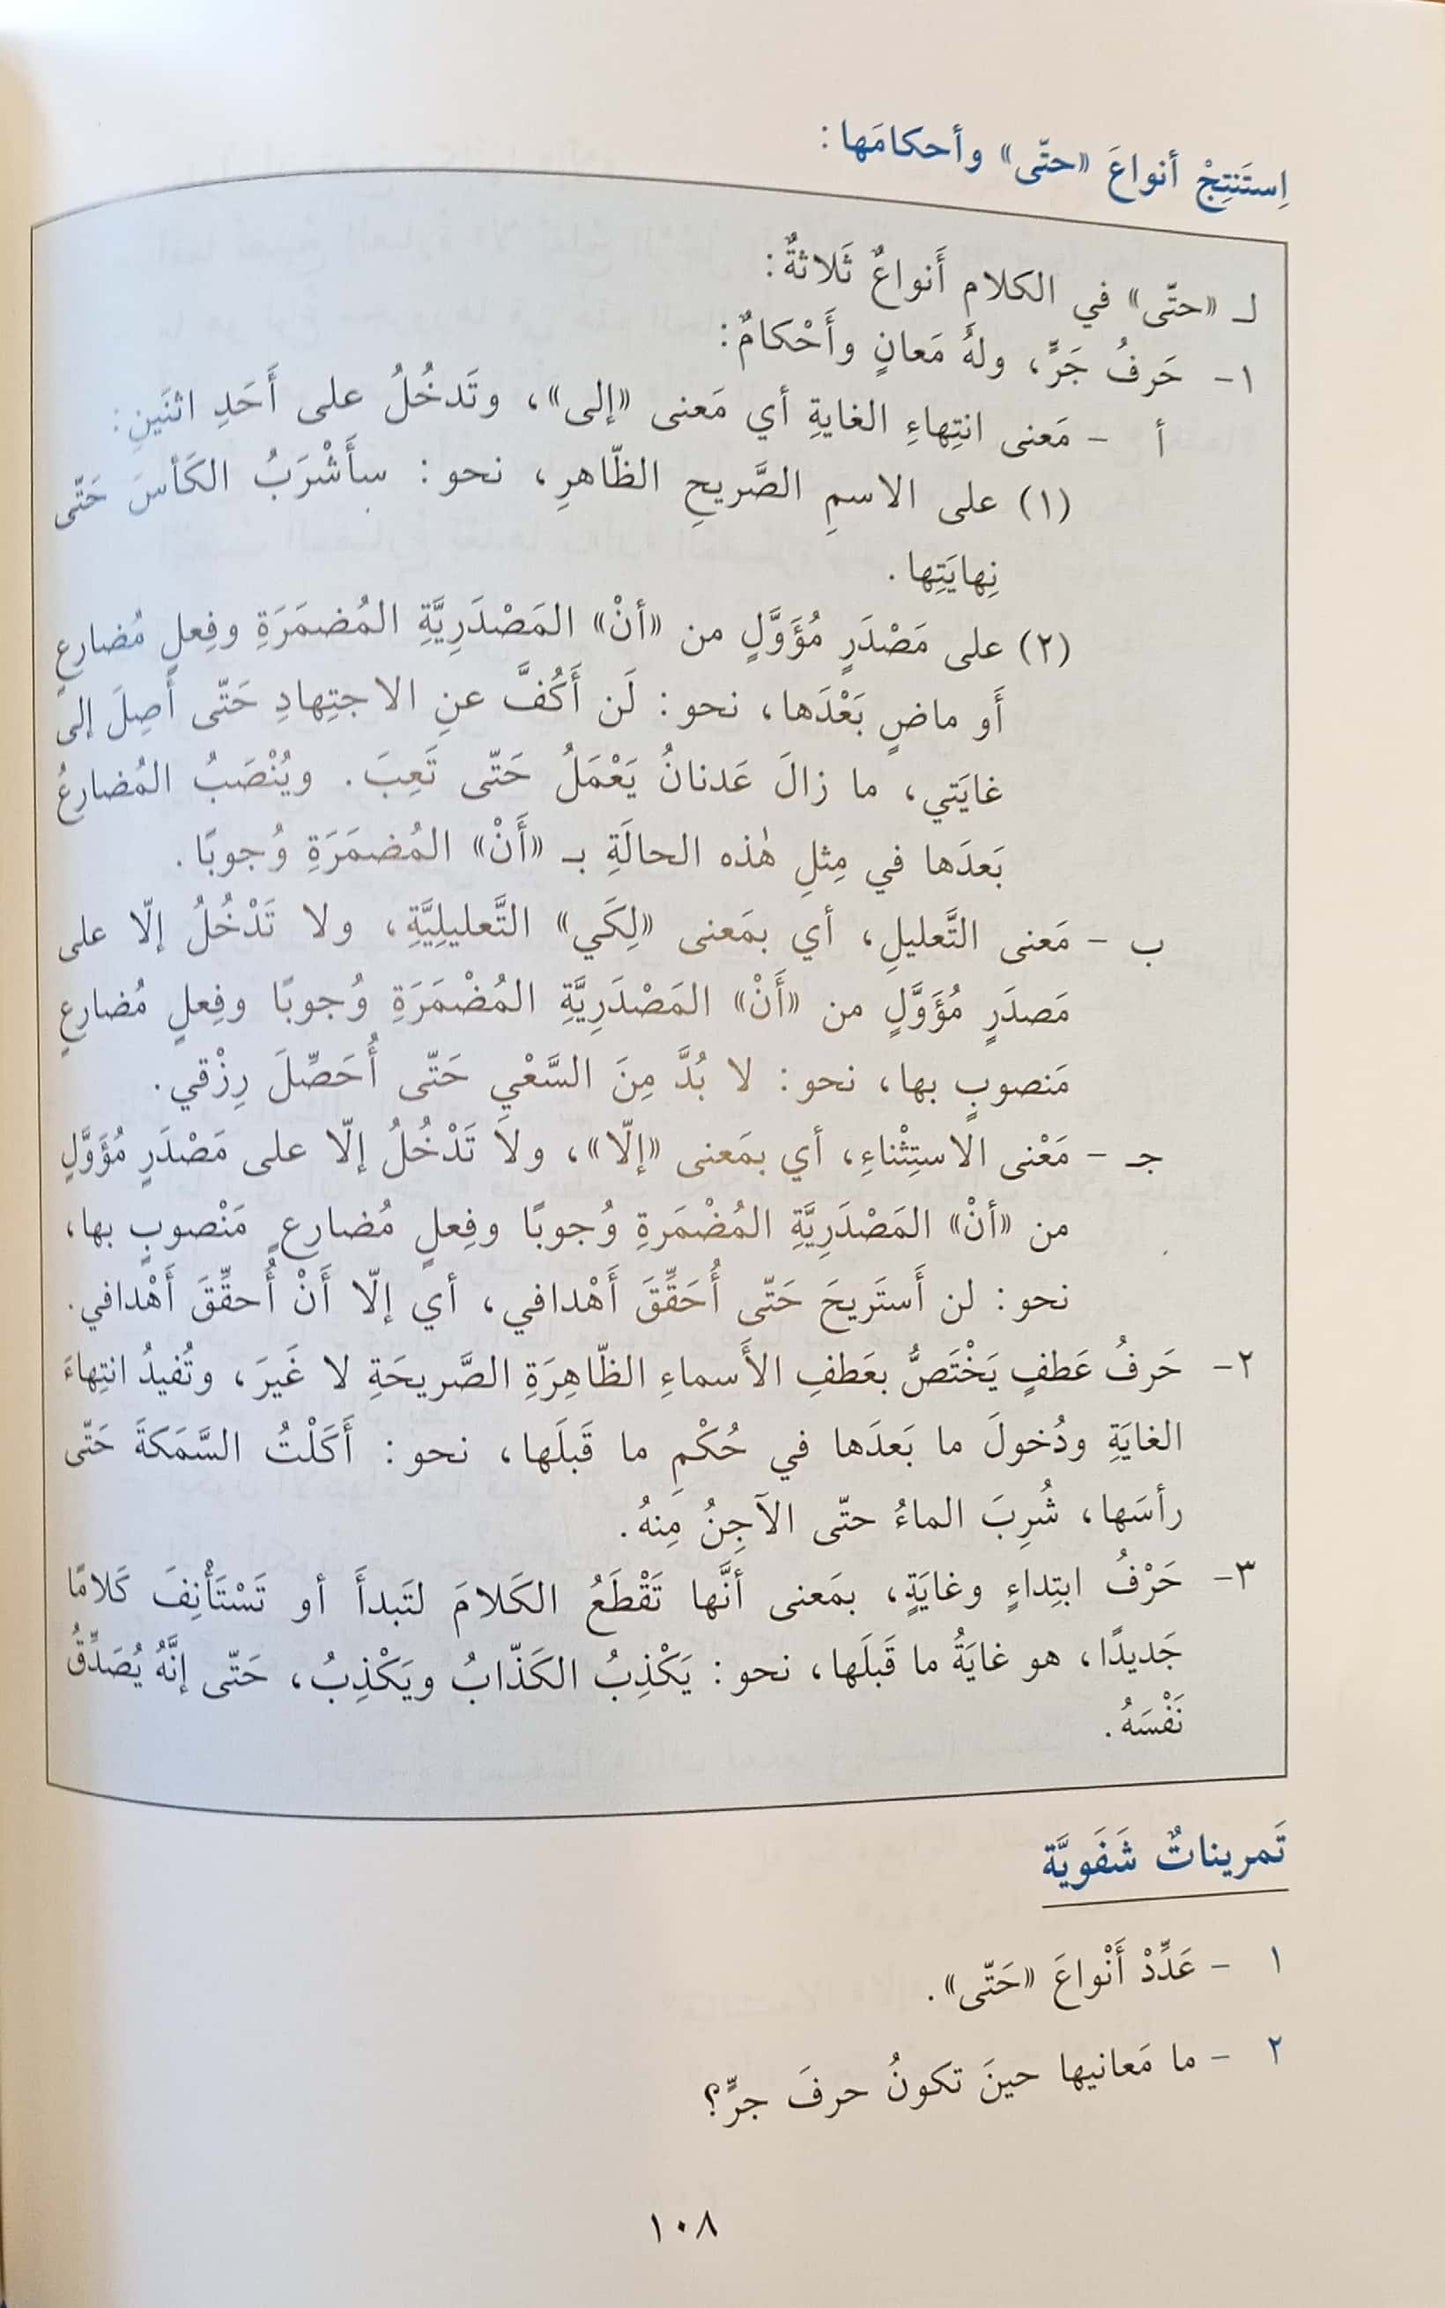 اِستَنتِجْ أنواعَ «حتّى» وأحكامَها:
لـ «حتّى» في الكلام أَنواعٌ ثَلاثةٌ:
١- حَرفُ جَرٍّ، ولهُ مَعانٍ وأَحْكامٌ:
أ - مَعنى انتِهاءِ الغايةِ أي مَعنى «إلى»، وتَدخُلُ على أَحَدِ اثنَينِ:
(١) على الاسمِ الصَّريحِ الظّاهرِ، نحو: سأَشْرَبُ الكَأسَ حَتّى
نِهايَتِها.
(٢) على مَصْدَرٍ مُؤَوَّلٍ من «أنْ» المَصْدَرِيَّةِ المُضمَرَةِ وفِعلٍ مُضارعٍ
أَو ماضٍ بَعْدَها، نحو: لَن أَكُفَّ عنِ الاجتِهادِ حَتّى أَصِلَ إلى
غايَتي، ما زالَ عَدنانُ يَعْمَلُ حَتّى تَعِبَ. ويُنْصَبُ المُضارعُ
بَعدَها في مِثلِ هٰذه الحالَةِ بـ «أَنْ» المُضمَرَةِ وُجوبًا.
ب - مَعنى التَّعليلِ، أي بمَعنى «لِكَي» التَّعليلِيَّةِ، ولا تَدْخُلُ إلّا على
مَصدَرٍ مُؤَوَّلٍ من «أَنْ» المَصْدَرِيَّةِ المُضْمَرَةِ وُجوبًا وفِعلٍ مُضارعٍ
مَنصوبٍ بها، نحو: لا بُدَّ مِنَ السَّعْيِ حَتّى أُحَصِّلَ رِزْقي.
جـ - مَعْنى الاستِثْناءِ، أي بمَعنى «إلّا»، ولا تَدْخُلُ إلّا على مَصْدَرٍ مُؤَوَّلٍ
من «أنْ» المَصْدَرِيَّةِ المُضْمَرةِ وُجوبًا وفِعلٍ مُضارعٍ مَنْصوبٍ بها،
نحو: لن أَستَريحَ حَتّى أُحَقِّقَ أَهْدافي، أي إلّا أَنْ أُحقِّقَ أَهْدافي.
٢- حَرفُ عَطفٍ يَخْتَصُّ بعَطفِ الأَسماءِ الظّاهِرَةِ الصَّريحَةِ لا غَيرَ، وتُفيدُ انتِهاءَ
الغايَةِ ودُخولَ ما بَعدَها في حُكْمِ ما قَبلَها، نحو: أَكَلْتُ السَّمَكةَ حَتّى
رأسَها، شُرِبَ الماءُ حتّى الآجِنُ مِنهُ.
٣- حَرْفُ ابتِداءٍ وغايَةٍ، بمَعنى أنَّها تَقْطَعُ الكَلامَ لتَبدأَ أو تَسْتَأْنِفَ كَلامًا
جَديدًا، هو غايَةُ ما قَبلَها، نحو: يَكْذِبُ الكَذّابُ ويَكْذِبُ، حَتّى إنَّهُ يُصَدِّقُ
نَفْسَهُ.
تَمريناتٌ شَفَويَّة
١ - عَدِّدْ أَنْواعَ «حَتّى».
٢ - ما مَعانيها حينَ تكونُ حرفَ جرٍّ؟
١٠٨